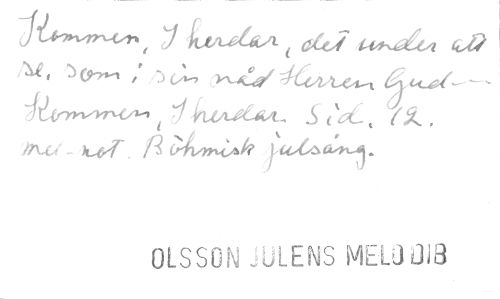 Kommen, I herdar, det under att
se, som i sin nåd Herren Gud —
Kommen, I herdar. Sid. 12.
mel-not. Böhmisk julsång.
OLSSON JULENS MELODIB